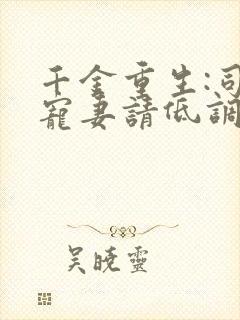 千金重生:司
寵妻請低調
吳曉靈